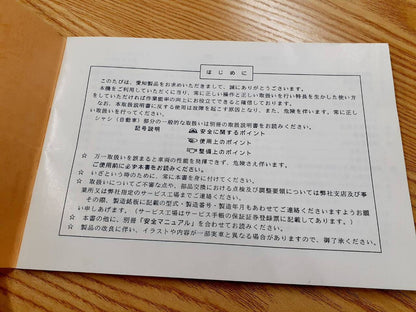 はじめに
このたびは、愛知製品をお求めいただきまして、誠にありがとうございます。
本機をご使用していただくに当り、常に正しい操作と正しい取扱いを行い特長を生かした使い方
をしていただければ作業能率の向上にお役立てできると確信しております。
なお、本取扱説明書に反する使用は故障を起こす原因となり、また、危険を伴います。常に正し
い取扱いを行ってください。
シャシ(自動車)部分の一般的な取扱いは別冊の取扱説明書をお読みください。
記号説明 安全に関するポイント
使用上のポイント
整備上のポイント
☆ 万一取扱いを誤まると車両の性能を発揮できず、危険さえ伴います。
ご使用前に必ず本書をお読みください。
☆ いざという時のために、常に本書を身に付けてください。
☆ 取扱いについてご不審な点や、部品交換における点検及び調整要領については弊社支店及び事
業所又は弊社指定のサービス工場までご連絡ください。
その際、製造銘板に記載の型式・製造番号・製造年月もあわせてご連絡くださいますようお願
い申しあげます。(サービス工場はサービス手帳の保証証券登録票に記載してあります。)
☆ 本書の他に、別冊「安全マニュアル」を合わせてお読みください。
☆ 製品の改良に伴い、イラストや内容が一部実車と異なる場合がありますので、御了承ください。